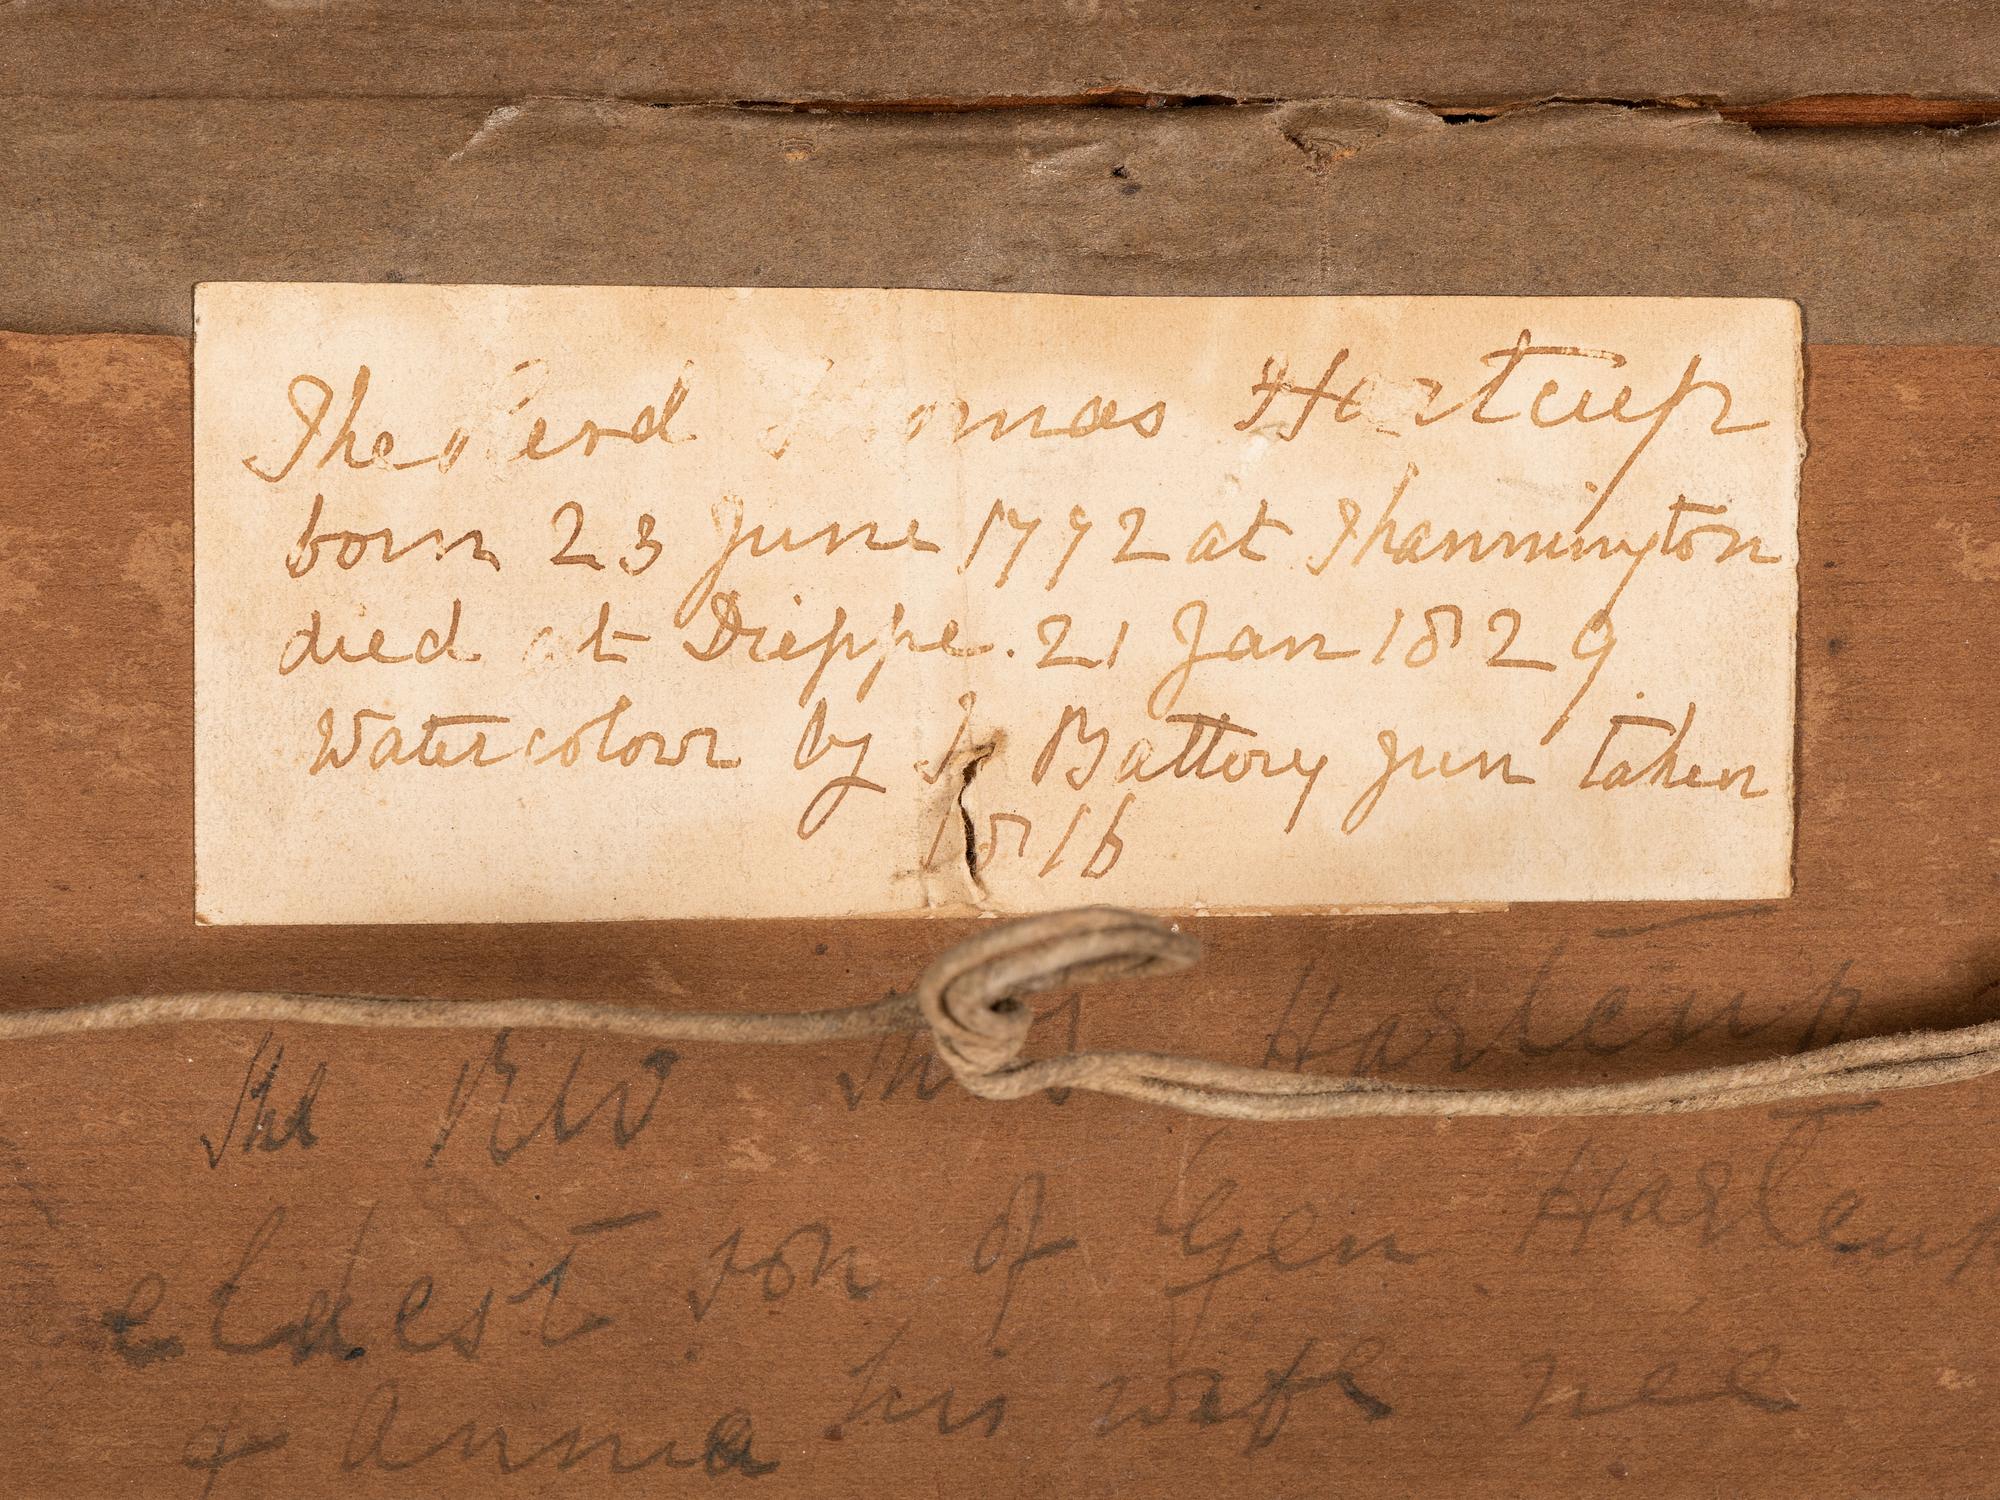 The Revd Thomas Hartcup
born 23 June 1792 at Thannington
died at Dieppe. 21 Jan 1829.
Watercolour by Battory Jun taken
1816
The Rev Thos Hartcup
eldest son of Gen Hartcup
& Anna his wife née